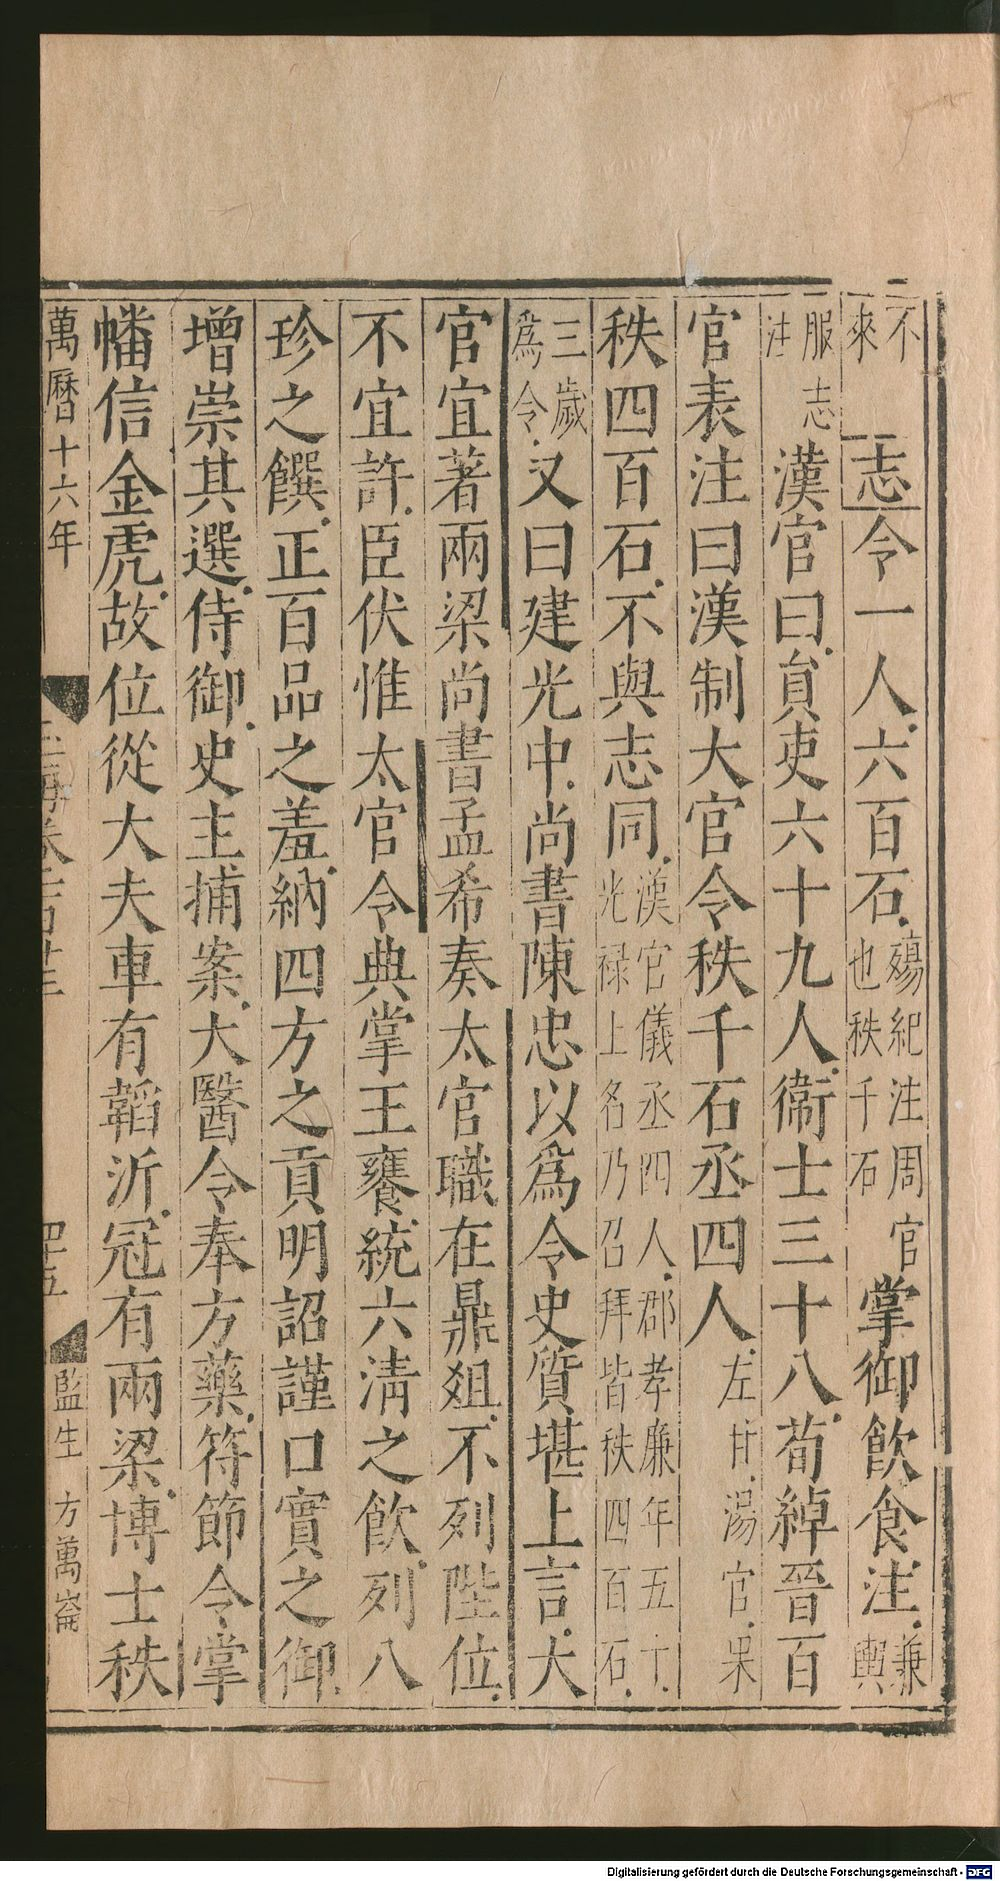 不來志令一人六百石殤紀注周官也秩千石掌御飲食注兼輿
服志注漢官曰貟吏六十九人衞士三十八荀綽晉百
官表注曰漢制大官令秩千石丞四人左甘湯官果
秩四百石不與志同漢官儀丞四人郡孝廉年五十光禄上名乃召拜皆秩四百石
三歲爲令又曰建光中尚書陳忠以爲令史質堪上言大
官宜著兩梁尚書孟希奏太官職在鼎爼不列陛位
不宜許臣伏惟太官令典掌王饔統六清之飲列八
珍之饌正百品之羞納四方之貢明詔謹口實之御
增崇其選侍御史主捕案大醫令奉方藥符節令掌
幡信金虎故位從大夫車有䩞沂冠有兩梁博士秩
萬曆十六年
四十五
監生 方萬崙
Digitalisierung gefördert durch die Deutsche Forschungsgemeinschaft - DFG